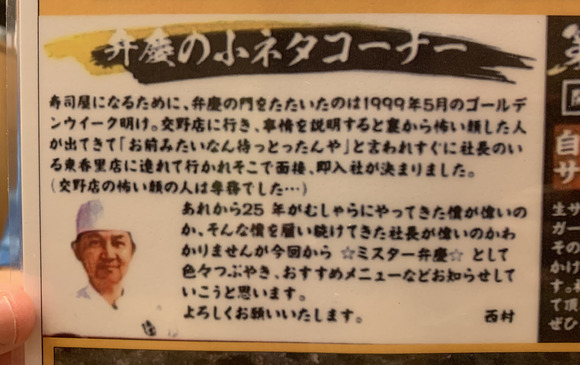 弁慶の小ネタコーナー
寿司屋になるために、弁慶の門をたたいたのは1999年5月のゴールデ
ンウイーク明け。交野店に行き、事情を説明すると裏から怖い顔した人
が出てきて「お前みたいなん待っとったんや」と言われすぐに社長のい
る東香里店に連れて行かれそこで面接、即入社が決まりました。
(交野店の怖い顔の人は専務でした…)
あれから25 年がむしゃらにやってきた僕が偉いの
か、そんな僕を雇い続けてきた社長が偉いのかわ
かりませんが今回から ☆ミスター弁慶☆ として
色々つぶやき、おすすめメニューなどお知らせして
いこうと思います。
よろしくお願いいたします。 西村
自
サ
生サ
ガー
その
かけ
す。
て頂
ぜひ